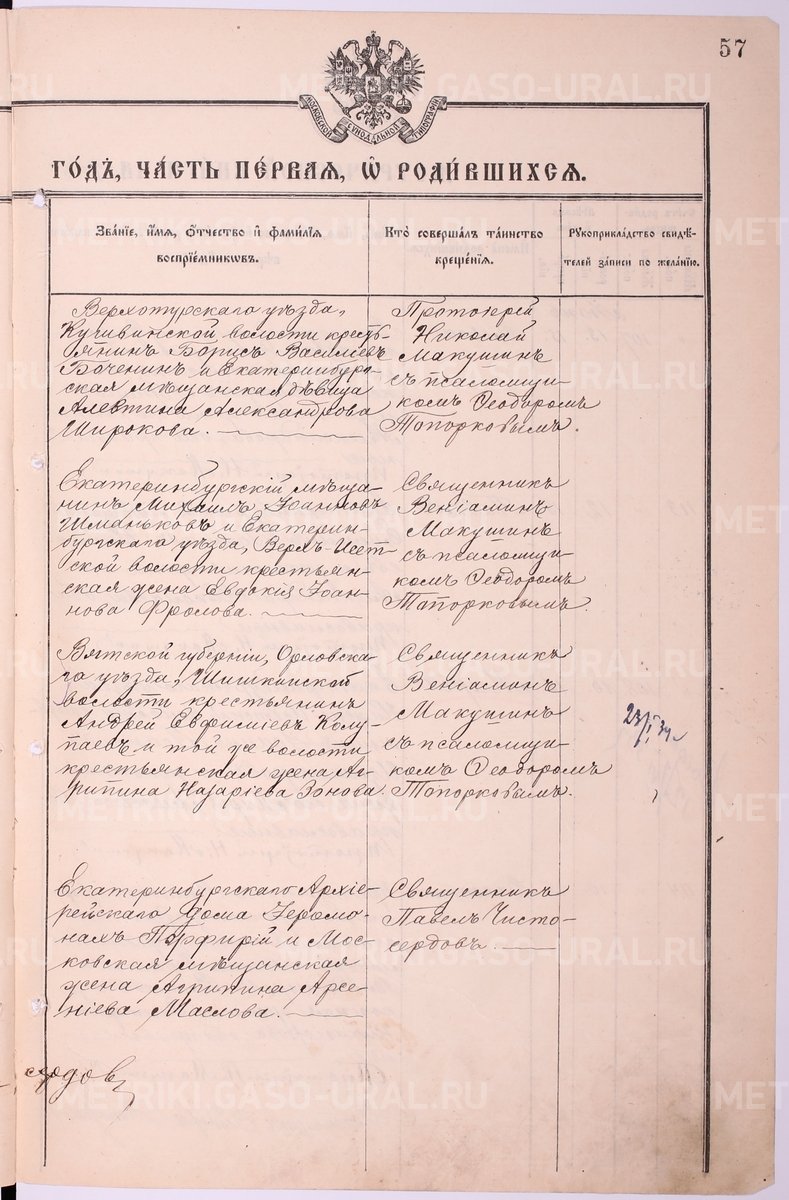 57
МОСКОВСКОЙ СѴНОДАЛЬНОЙ ТИПОГРАФІИ
ГО́ДЪ, ЧА́СТЬ ПЕ́РВАЯ, Ѡ҆ РОДИ́ВШИХСЯ.
ЗВА́НІЕ, И҆́МЯ, Ѻ҆́ТЧЕСТВО И҆ ФАМИ́ЛІЯ
ВОСПРІЕ́МНИКѠВЪ.
КТО̀ СОВЕРША́ЛЪ ТА́ИНСТВО
КРЕЩЕ́НІЯ.
РУКОПРИКЛА́ДСТВО СВИДѢ́-
ТЕЛЕЙ ЗА́ПИСИ ПО ЖЕЛА́НІЮ.
Верхотурскаго уѣзда,
Кушвинской волости кресть-
янинъ Борисъ Васильевъ
Боченинъ и Екатеринбург-
ская мѣщанская дѣвица
Алевтина Александрова
Широкова.
Протоіерей
Николай
Макушинъ
съ псаломщи-
комъ Ѳеодоромъ
Топорковымъ.
Екатеринбургскій мѣща-
нинъ Михаилъ Іоанновъ
Шманьковъ и Екатерин-
бургскаго уѣзда, Верхъ-Исет-
ской волости крестьян-
ская жена Евдокія Іоан-
нова Фролова.
Священникъ
Веніаминъ
Макушинъ
съ псаломщи-
комъ Ѳеодоромъ
Топорковымъ.
Вятской губерніи, Орловска-
го уѣзда, Шишкинской
волости крестьянинъ
Андрей Евфиміевъ Колу-
паевъ и той же волости
крестьянская жена Аг-
рипина Назаріева Зонова.
Священникъ
Веніаминъ
Макушинъ
съ псаломщи-
комъ Ѳеодоромъ
Топорковымъ.
Екатеринбургскаго Архіе-
рейскаго дома Іеромо-
нахъ Порфирій и Мос-
ковская мѣщанская
жена Агрипина Арсе-
ніева Маслова.
Священникъ
Павелъ Чисто-
сердовъ.
METRIKI.GASO-URAL.RU